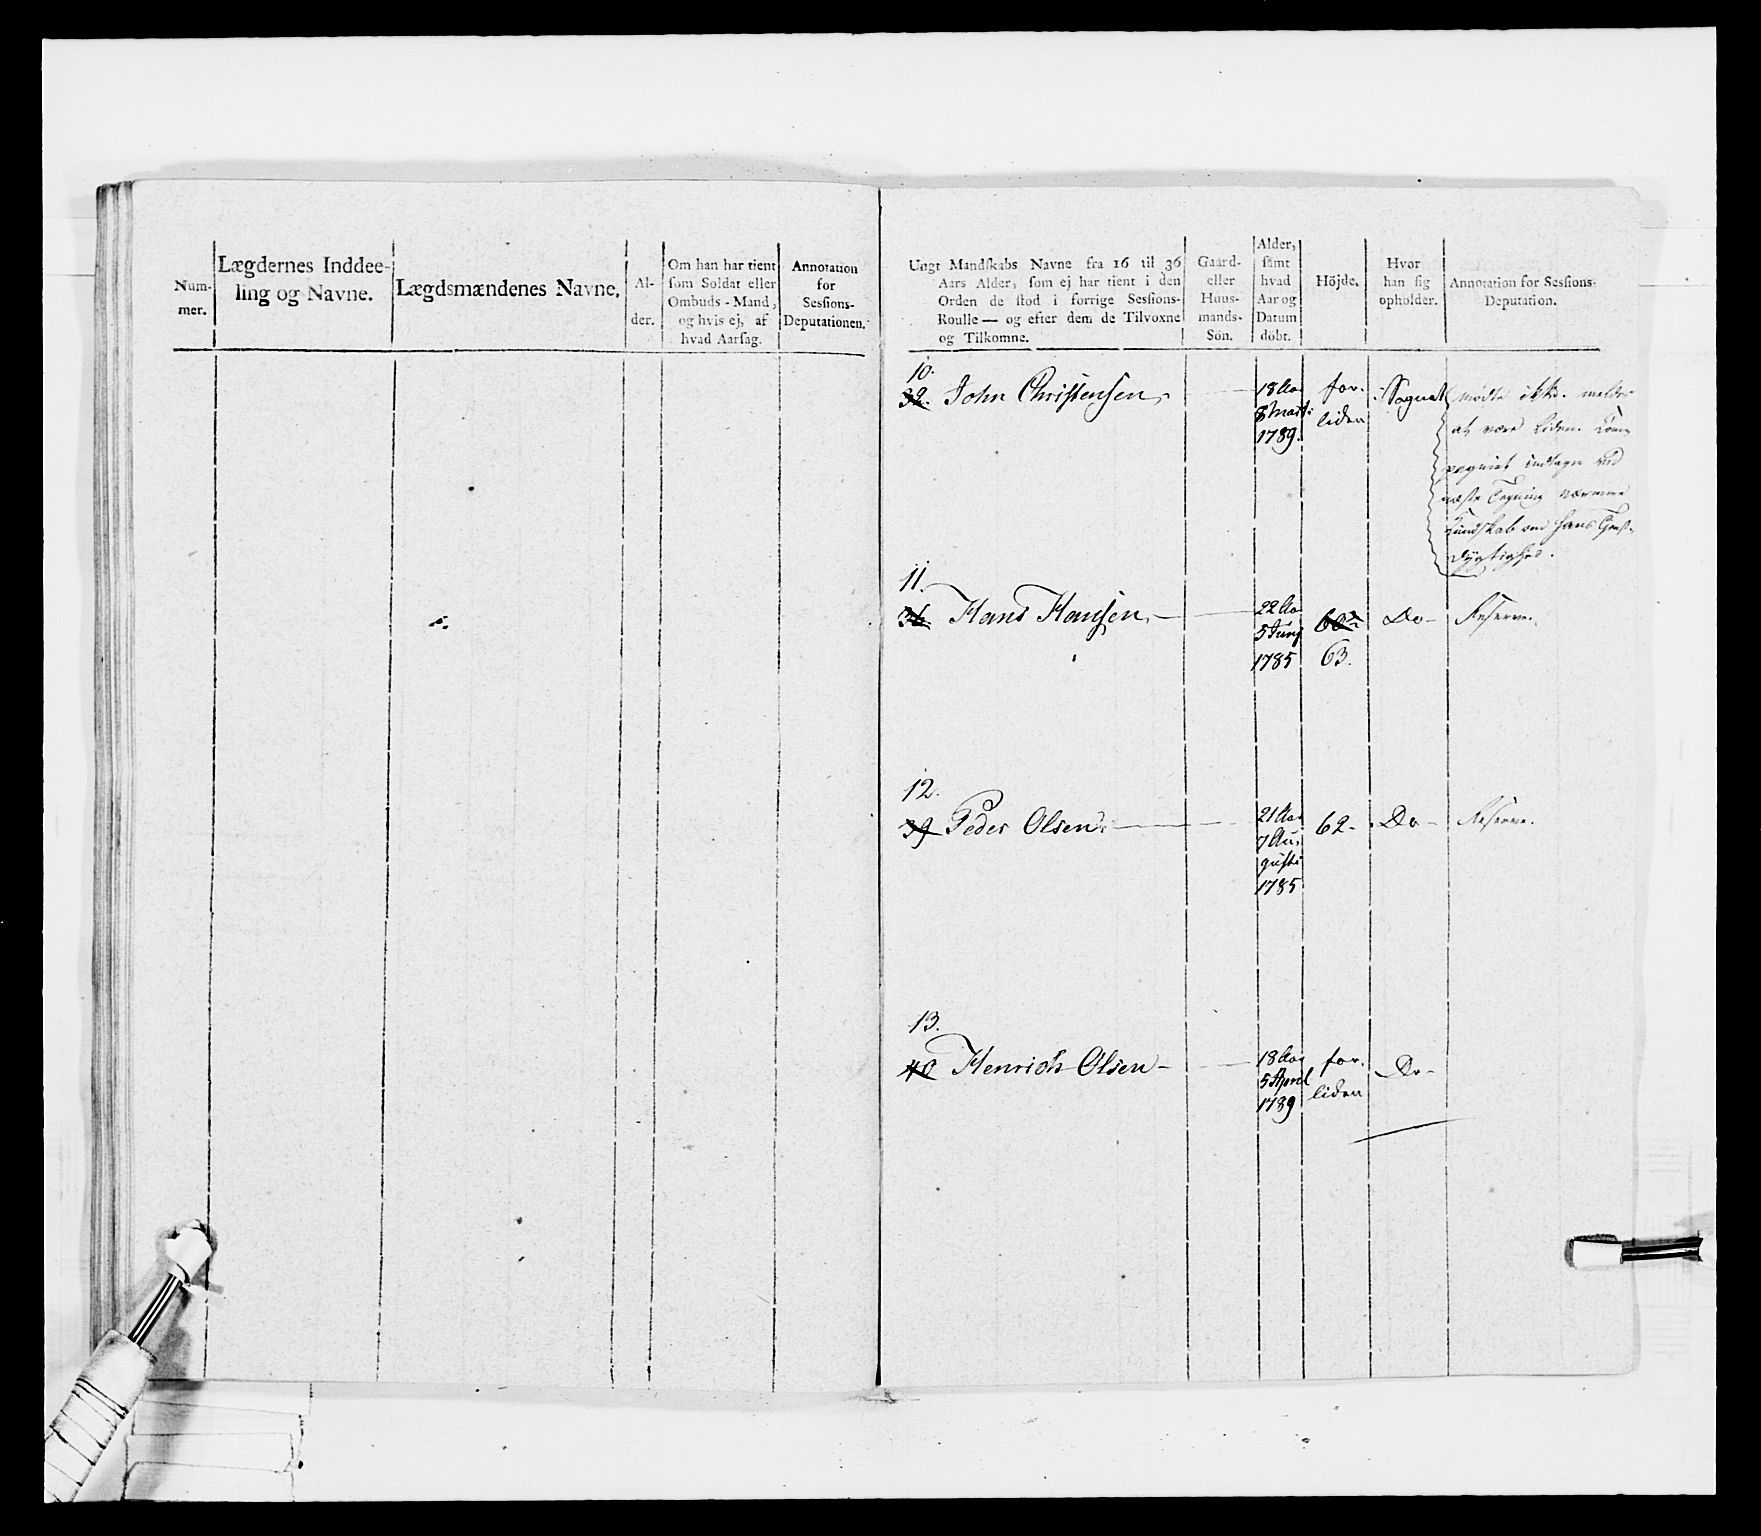 Num-
mer.
Lægdernes Inddee-
ling og Navne.
Lægdsmændenes Navne.
Al-
der.
Om han har tient
som Soldat eller
Ombuds-Mand,
og hvis ej, af
hvad Aarsag.
Annotation
for
Sessions-
Deputationen.
Ungt Mandskabs Navne fra 16 til 36
Aars Alder, som ej har tient i den
Orden de stod i forrige Sessions-
Roulle — og efter dem de Tilvoxne
og Tilkomne.
Gaard-
eller
Huus-
mands-
Søn.
Alder,
samt
hvad
Aar og
Datum
döbt.
Höjde.
Hvor
han sig
opholder.
Annotation for Sessions-
Deputation.
10.
John Christensen
18 Aar
8 Marti
1789.
for.
liden
Sognet
mødte ikke. meldes
at være liden. Com-
pagniet indtager ved
næste Tegning nærmere
Kundskab om hans Tienst-
dygtighed.
11.
36. Hans Hansen
22 Aar
5 Junj
1785
63.
Do
Reserve.
12.
39 Peder Olsen
21 Aar
7 Au-
gusti
1785
62.
Do
Reserve.
13.
40 Henrich Olsen
18 Aar
5 April
1789
for.
liden
Do